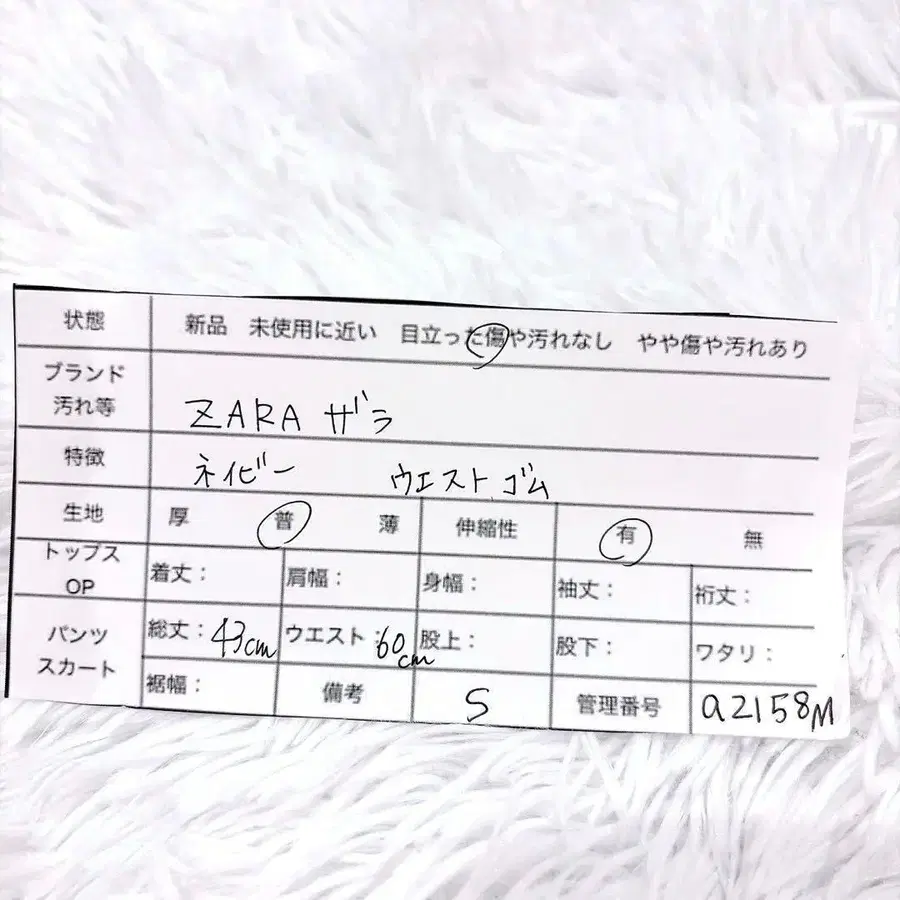 状態 新品 未使用に近い 目立った傷や汚れなし やや傷や汚れあり
ブランド
汚れ等 ZARA ザラ
特徴 ネイビー ウエストゴム
生地 厚 普 薄 伸縮性 有 無
トップス
OP 着丈： 肩幅： 身幅： 袖丈： 裄丈：
パンツ
スカート 総丈：43cm ウエスト：60cm 股上： 股下： ワタリ：
裾幅： 備考 S 管理番号 a2158M